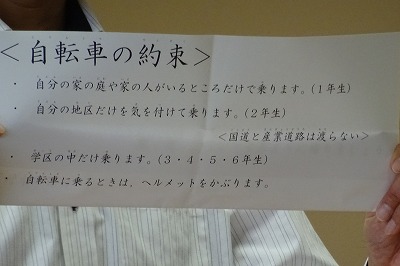 ＜自転車の約束＞
・ 自分の家の庭や家の人がいるところだけで乗ります。(1年生)
・ 自分の地区だけを気を付けて乗ります。(2年生)
＜国道と産業道路は渡らない＞
・ 学区の中だけ乗ります。(3・4・5・6年生)
・ 自転車に乗るときは、ヘルメットをかぶります。